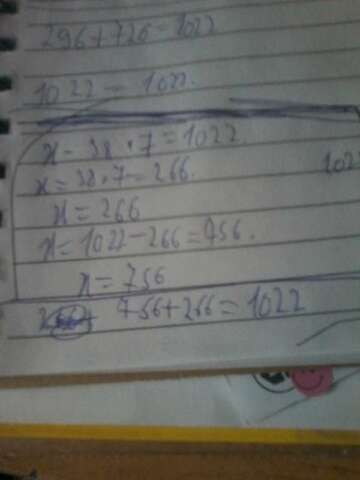 296+726=1022
1022 = 1022.
x - 38 · 7 = 1022.
x = 38 · 7 = 266.
1022
x = 266
x = 1022 - 266 = 756.
x = 756
756 + 266 = 1022